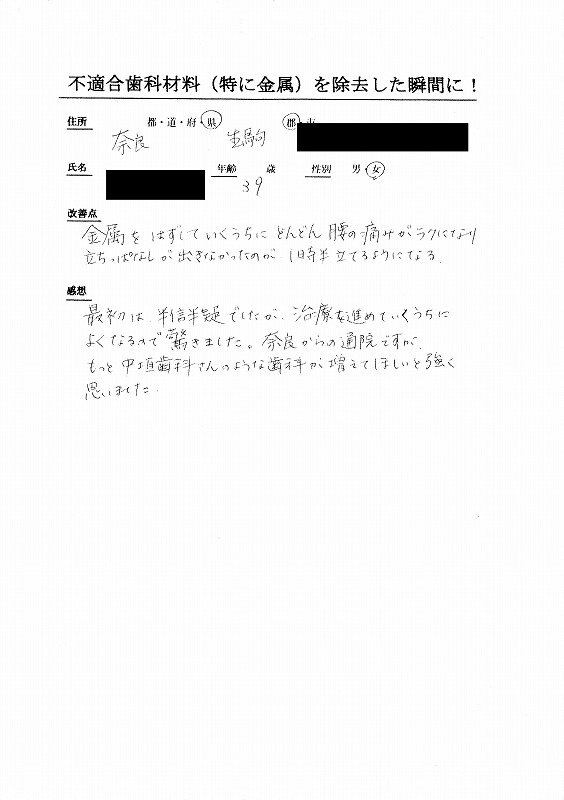 不適合歯科材料（特に金属）を除去した瞬間に！
住所 都・道・府・県 郡・市
奈良 生駒
氏名 年齢 歳 性別 男・女
39
改善点
金属をはずしていくうちにどんどん腰の痛みがラクになり
立ちっぱなしが出きなかったのが、1時半立てるようになる。
感想
最初は、半信半疑でしたが、治療を進めていくうちに
よくなるので驚きました。奈良からの通院ですが、
もっと中垣歯科さんのような歯科が増えてほしいと強く
思いました。